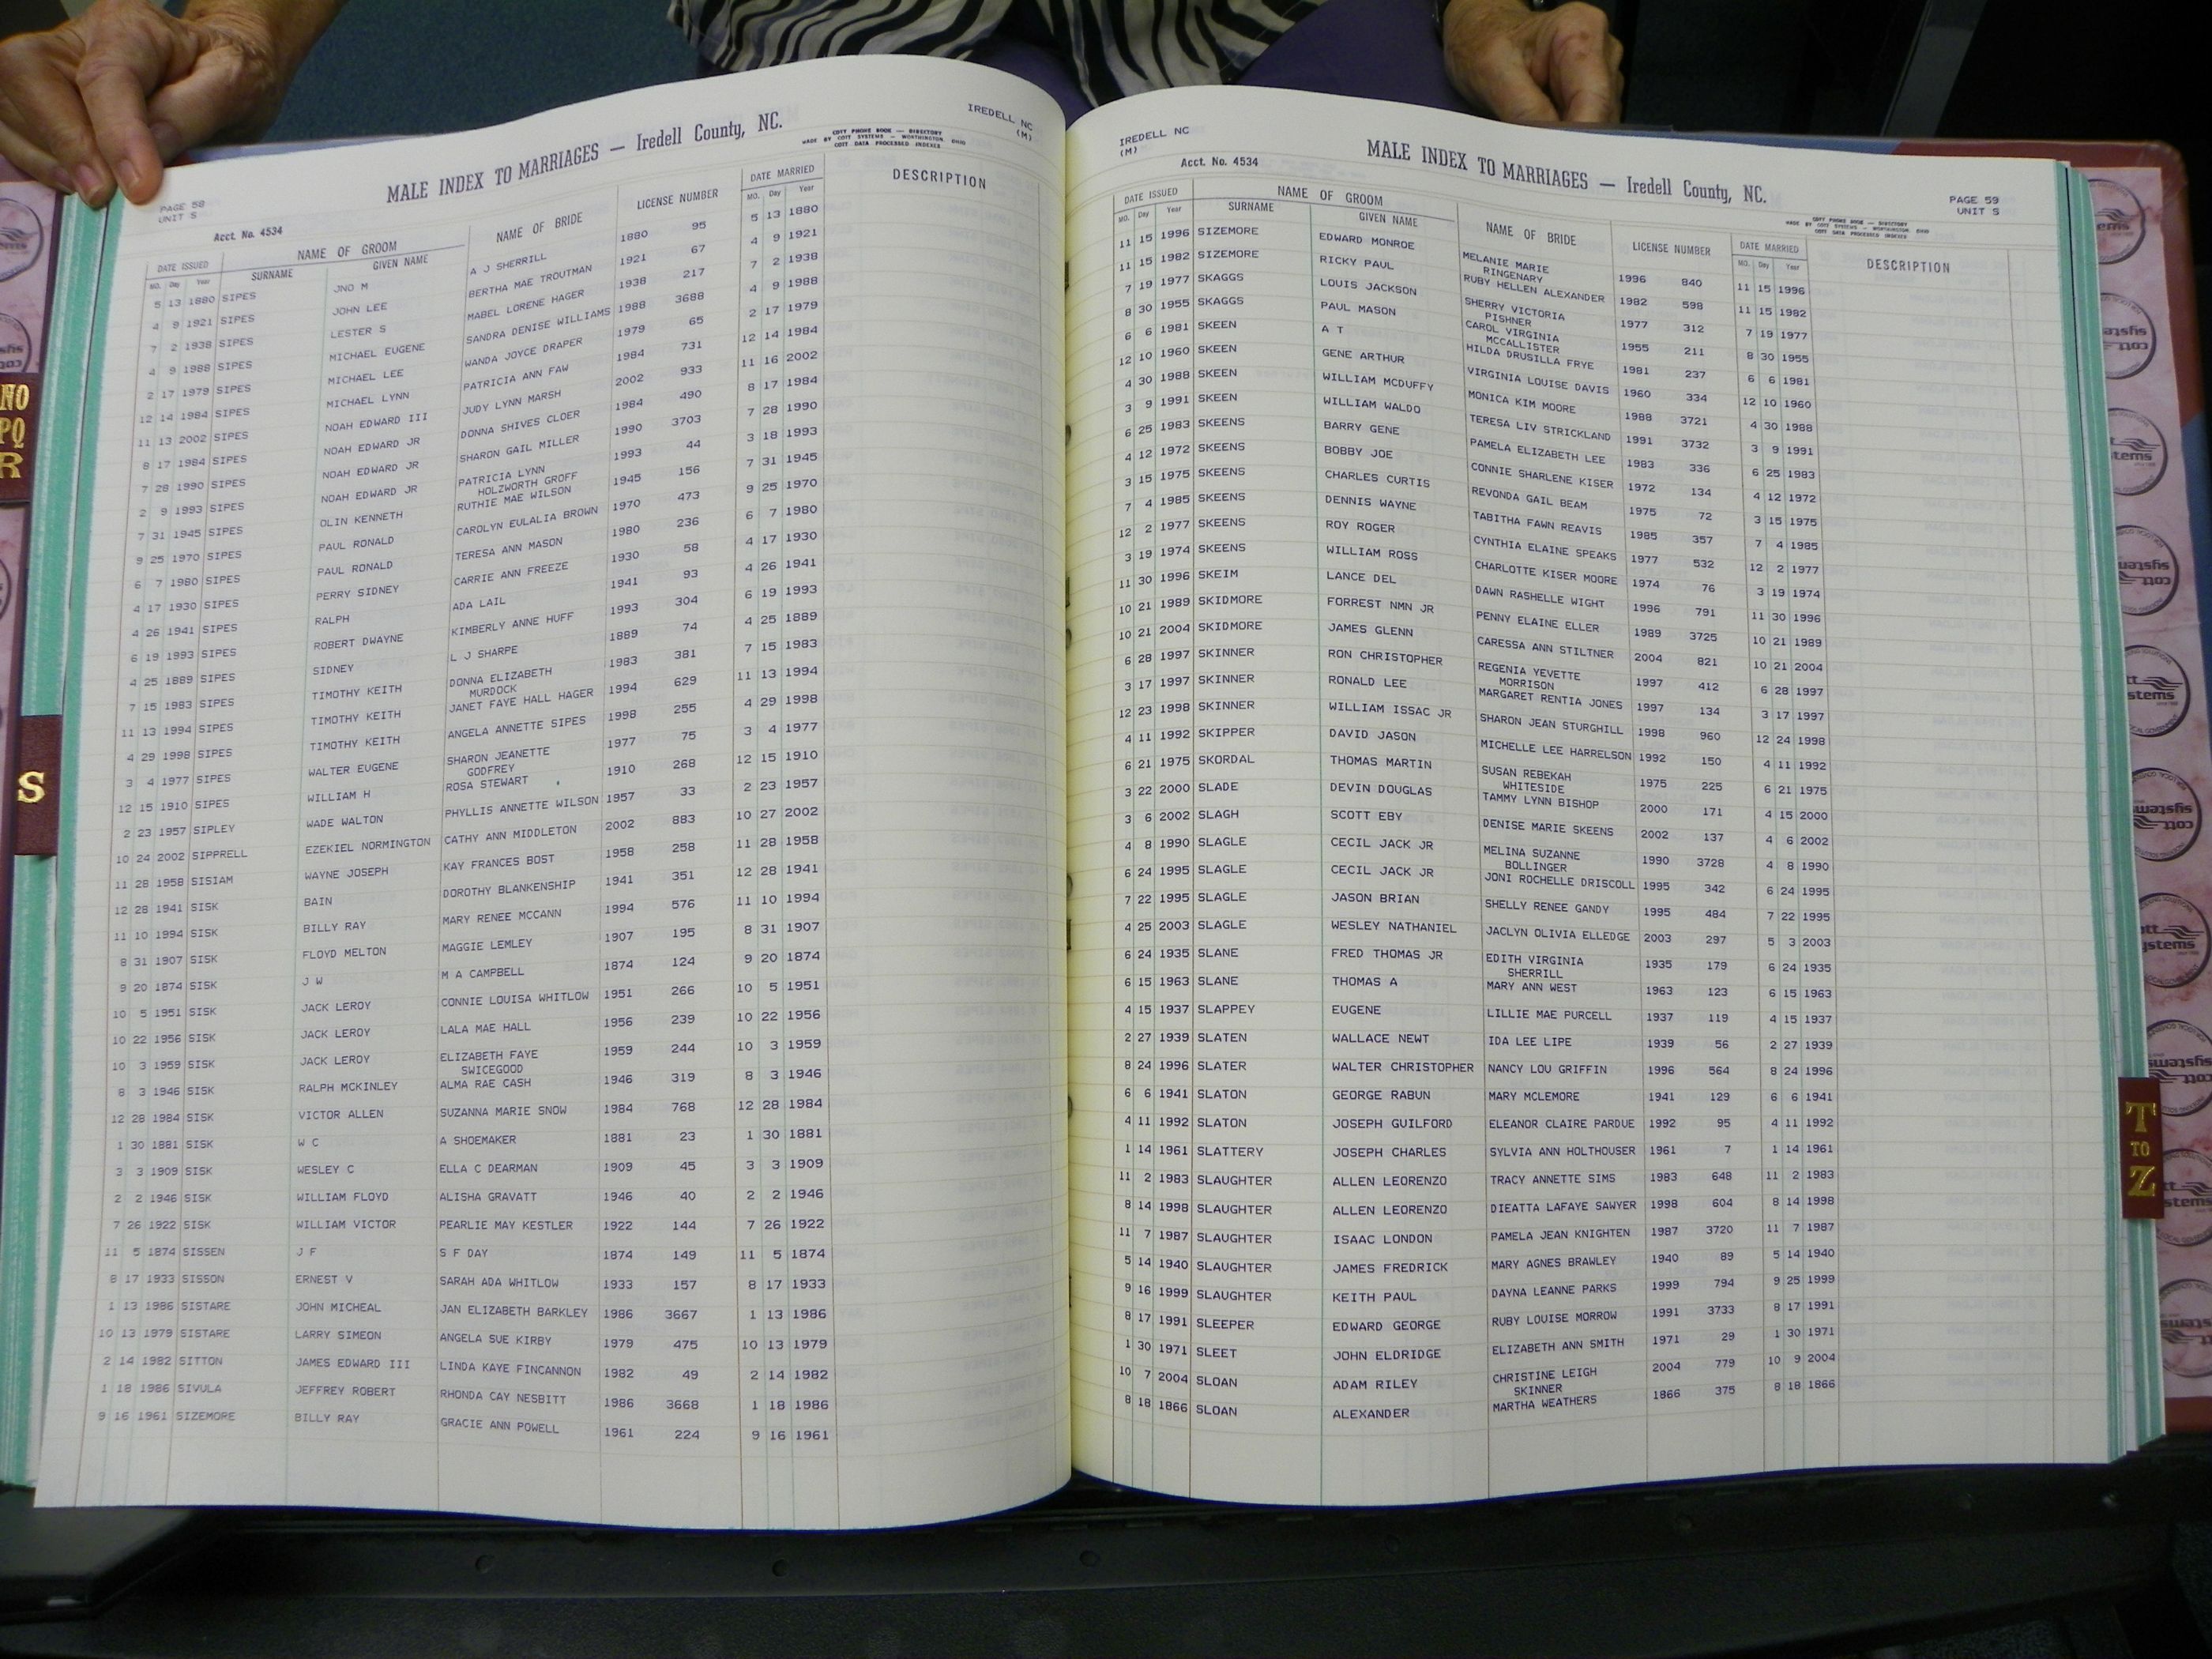 IREDELL NC
(M)
MALE INDEX TO MARRIAGES — Iredell County, NC.
COTT PHONE BOOK — DIRECTORY
MADE BY COTT SYSTEMS — WORTHINGTON, OHIO
COTT DATA PROCESSED INDEXES
PAGE 58
UNIT S
Acct. No. 4534
DATE ISSUED NAME OF GROOM NAME OF BRIDE LICENSE NUMBER DATE MARRIED DESCRIPTION
MO. Day Year SURNAME GIVEN NAME MO. Day Year
5 13 1880 SIPES JNO M A J SHERRILL 1880 95 5 13 1880
4 9 1921 SIPES JOHN LEE BERTHA MAE TROUTMAN 1921 67 4 9 1921
7 2 1938 SIPES LESTER S MABEL LORENE HAGER 1938 217 7 2 1938
4 9 1988 SIPES MICHAEL EUGENE SANDRA DENISE WILLIAMS 1988 3688 4 9 1988
2 17 1979 SIPES MICHAEL LEE WANDA JOYCE DRAPER 1979 65 2 17 1979
12 14 1984 SIPES MICHAEL LYNN PATRICIA ANN FAW 1984 731 12 14 1984
11 13 2002 SIPES NOAH EDWARD III JUDY LYNN MARSH 2002 933 11 16 2002
8 17 1984 SIPES NOAH EDWARD JR DONNA SHIVES CLOER 1984 490 8 17 1984
7 28 1990 SIPES NOAH EDWARD JR SHARON GAIL MILLER 1990 3703 7 28 1990
2 9 1993 SIPES NOAH EDWARD JR PATRICIA LYNN 1993 44 3 18 1993
HOLZWORTH GROFF
7 31 1945 SIPES OLIN KENNETH RUTHIE MAE WILSON 1945 156 7 31 1945
9 25 1970 SIPES PAUL RONALD CAROLYN EULALIA BROWN 1970 473 9 25 1970
6 7 1980 SIPES PAUL RONALD TERESA ANN MASON 1980 236 6 7 1980
4 17 1930 SIPES PERRY SIDNEY CARRIE ANN FREEZE 1930 58 4 17 1930
4 26 1941 SIPES RALPH ADA LAIL 1941 93 4 26 1941
6 19 1993 SIPES ROBERT DWAYNE KIMBERLY ANNE HUFF 1993 304 6 19 1993
4 25 1889 SIPES SIDNEY L J SHARPE 1889 74 4 25 1889
7 15 1983 SIPES TIMOTHY KEITH DONNA ELIZABETH 1983 381 7 15 1983
MURDOCK
11 13 1994 SIPES TIMOTHY KEITH JANET FAYE HALL HAGER 1994 629 11 13 1994
4 29 1998 SIPES TIMOTHY KEITH ANGELA ANNETTE SIPES 1998 255 4 29 1998
3 4 1977 SIPES WALTER EUGENE SHARON JEANETTE 1977 75 3 4 1977
GODFREY
12 15 1910 SIPES WILLIAM H ROSA STEWART 1910 268 12 15 1910
2 23 1957 SIPLEY WADE WALTON PHYLLIS ANNETTE WILSON 1957 33 2 23 1957
10 24 2002 SIPPRELL EZEKIEL NORMINGTON CATHY ANN MIDDLETON 2002 883 10 27 2002
11 28 1958 SISIAM WAYNE JOSEPH KAY FRANCES BOST 1958 258 11 28 1958
12 28 1941 SISK BAIN DOROTHY BLANKENSHIP 1941 351 12 28 1941
11 10 1994 SISK BILLY RAY MARY RENEE MCCANN 1994 576 11 10 1994
8 31 1907 SISK FLOYD MELTON MAGGIE LEMLEY 1907 195 8 31 1907
9 20 1874 SISK J W M A CAMPBELL 1874 124 9 20 1874
10 5 1951 SISK JACK LEROY CONNIE LOUISA WHITLOW 1951 266 10 5 1951
10 22 1956 SISK JACK LEROY LALA MAE HALL 1956 239 10 22 1956
10 3 1959 SISK JACK LEROY ELIZABETH FAYE 1959 244 10 3 1959
SWICEGOOD
8 3 1946 SISK RALPH MCKINLEY ALMA RAE CASH 1946 319 8 3 1946
12 28 1984 SISK VICTOR ALLEN SUZANNA MARIE SNOW 1984 768 12 28 1984
1 30 1881 SISK W C A SHOEMAKER 1881 23 1 30 1881
3 3 1909 SISK WESLEY C ELLA C DEARMAN 1909 45 3 3 1909
2 2 1946 SISK WILLIAM FLOYD ALISHA GRAVATT 1946 40 2 2 1946
7 26 1922 SISK WILLIAM VICTOR PEARLIE MAY KESTLER 1922 144 7 26 1922
11 5 1874 SISSEN J F S F DAY 1874 149 11 5 1874
8 17 1933 SISSON ERNEST V SARAH ADA WHITLOW 1933 157 8 17 1933
1 13 1986 SISTARE JOHN MICHEAL JAN ELIZABETH BARKLEY 1986 3667 1 13 1986
10 13 1979 SISTARE LARRY SIMEON ANGELA SUE KIRBY 1979 475 10 13 1979
2 14 1982 SITTON JAMES EDWARD III LINDA KAYE FINCANNON 1982 49 2 14 1982
1 18 1986 SIVULA JEFFREY ROBERT RHONDA CAY NESBITT 1986 3668 1 18 1986
9 16 1961 SIZEMORE BILLY RAY GRACIE ANN POWELL 1961 224 9 16 1961
IREDELL NC
(M)
Acct. No. 4534
MALE INDEX TO MARRIAGES — Iredell County, NC.
COTT PHONE BOOK — DIRECTORY
MADE BY COTT SYSTEMS — WORTHINGTON, OHIO
COTT DATA PROCESSED INDEXES
PAGE 59
UNIT S
DATE ISSUED NAME OF GROOM NAME OF BRIDE LICENSE NUMBER DATE MARRIED DESCRIPTION
MO. Day Year SURNAME GIVEN NAME MO. Day Year
11 15 1996 SIZEMORE EDWARD MONROE MELANIE MARIE 1996 840 11 15 1996
RINGENARY
11 15 1982 SIZEMORE RICKY PAUL RUBY HELLEN ALEXANDER 1982 598 11 15 1982
7 19 1977 SKAGGS LOUIS JACKSON SHERRY VICTORIA 1977 312 7 19 1977
PISHNER
8 30 1955 SKAGGS PAUL MASON CAROL VIRGINIA 1955 211 8 30 1955
MCCALLISTER
6 6 1981 SKEEN A T HILDA DRUSILLA FRYE 1981 237 6 6 1981
12 10 1960 SKEEN GENE ARTHUR VIRGINIA LOUISE DAVIS 1960 334 12 10 1960
4 30 1988 SKEEN WILLIAM MCDUFFY MONICA KIM MOORE 1988 3721 4 30 1988
3 9 1991 SKEEN WILLIAM WALDO TERESA LIV STRICKLAND 1991 3732 3 9 1991
6 25 1983 SKEENS BARRY GENE PAMELA ELIZABETH LEE 1983 336 6 25 1983
4 12 1972 SKEENS BOBBY JOE CONNIE SHARLENE KISER 1972 134 4 12 1972
3 15 1975 SKEENS CHARLES CURTIS REVONDA GAIL BEAM 1975 72 3 15 1975
7 4 1985 SKEENS DENNIS WAYNE TABITHA FAWN REAVIS 1985 357 7 4 1985
12 2 1977 SKEENS ROY ROGER CYNTHIA ELAINE SPEAKS 1977 532 12 2 1977
3 19 1974 SKEENS WILLIAM ROSS CHARLOTTE KISER MOORE 1974 76 3 19 1974
11 30 1996 SKEIM LANCE DEL DAWN RASHELLE WIGHT 1996 791 11 30 1996
10 21 1989 SKIDMORE FORREST NMN JR PENNY ELAINE ELLER 1989 3725 10 21 1989
10 21 2004 SKIDMORE JAMES GLENN CARESSA ANN STILTNER 2004 821 10 21 2004
6 28 1997 SKINNER RON CHRISTOPHER REGENIA YEVETTE 1997 412 6 28 1997
MORRISON
3 17 1997 SKINNER RONALD LEE MARGARET RENTIA JONES 1997 134 3 17 1997
12 23 1998 SKINNER WILLIAM ISSAC JR SHARON JEAN STURGHILL 1998 960 12 24 1998
4 11 1992 SKIPPER DAVID JASON MICHELLE LEE HARRELSON 1992 150 4 11 1992
6 21 1975 SKORDAL THOMAS MARTIN SUSAN REBEKAH 1975 225 6 21 1975
WHITESIDE
3 22 2000 SLADE DEVIN DOUGLAS TAMMY LYNN BISHOP 2000 171 4 15 2000
3 6 2002 SLAGH SCOTT EBY DENISE MARIE SKEENS 2002 137 4 6 2002
4 8 1990 SLAGLE CECIL JACK JR MELINA SUZANNE 1990 3728 4 8 1990
BOLLINGER
6 24 1995 SLAGLE CECIL JACK JR JONI ROCHELLE DRISCOLL 1995 342 6 24 1995
7 22 1995 SLAGLE JASON BRIAN SHELLY RENEE GANDY 1995 484 7 22 1995
4 25 2003 SLAGLE WESLEY NATHANIEL JACLYN OLIVIA ELLEDGE 2003 297 5 3 2003
6 24 1935 SLANE FRED THOMAS JR EDITH VIRGINIA 1935 179 6 24 1935
SHERRILL
6 15 1963 SLANE THOMAS A MARY ANN WEST 1963 123 6 15 1963
4 15 1937 SLAPPEY EUGENE LILLIE MAE PURCELL 1937 119 4 15 1937
2 27 1939 SLATEN WALLACE NEWT IDA LEE LIPE 1939 56 2 27 1939
8 24 1996 SLATER WALTER CHRISTOPHER NANCY LOU GRIFFIN 1996 564 8 24 1996
6 6 1941 SLATON GEORGE RABUN MARY MCLEMORE 1941 129 6 6 1941
4 11 1992 SLATON JOSEPH GUILFORD ELEANOR CLAIRE PARDUE 1992 95 4 11 1992
1 14 1961 SLATTERY JOSEPH CHARLES SYLVIA ANN HOLTHOUSER 1961 7 1 14 1961
11 2 1983 SLAUGHTER ALLEN LEORENZO TRACY ANNETTE SIMS 1983 648 11 2 1983
8 14 1998 SLAUGHTER ALLEN LEORENZO DIEATTA LAFAYE SAWYER 1998 604 8 14 1998
11 7 1987 SLAUGHTER ISAAC LONDON PAMELA JEAN KNIGHTEN 1987 3720 11 7 1987
5 14 1940 SLAUGHTER JAMES FREDRICK MARY AGNES BRAWLEY 1940 89 5 14 1940
9 16 1999 SLAUGHTER KEITH PAUL DAYNA LEANNE PARKS 1999 794 9 25 1999
8 17 1991 SLEEPER EDWARD GEORGE RUBY LOUISE MORROW 1991 3733 8 17 1991
1 30 1971 SLEET JOHN ELDRIDGE ELIZABETH ANN SMITH 1971 29 1 30 1971
10 7 2004 SLOAN ADAM RILEY CHRISTINE LEIGH 2004 779 10 9 2004
SKINNER
8 18 1866 SLOAN ALEXANDER MARTHA WEATHERS 1866 375 8 18 1866
NO
PQ
R
S
T
TO
Z
cott
systems